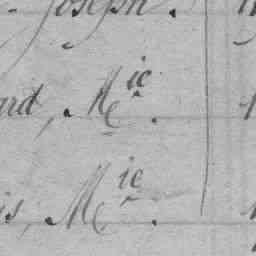 Joseph.
ard, M.ie
is, M.ie